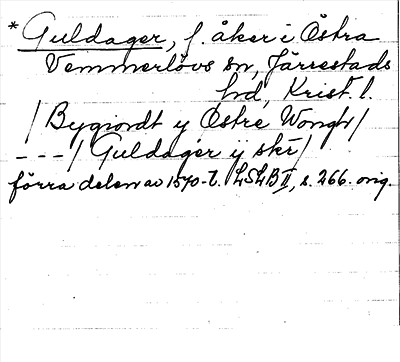 * Guldager, f. åker i Östra
Vemmerlövs sn, Järrestads
hd, Krist. l.
/ Bygiordt y Östre Wongh /
---/ Guldager ij skr /
förra delen av 1570-t. LSLB II, s. 266. orig.